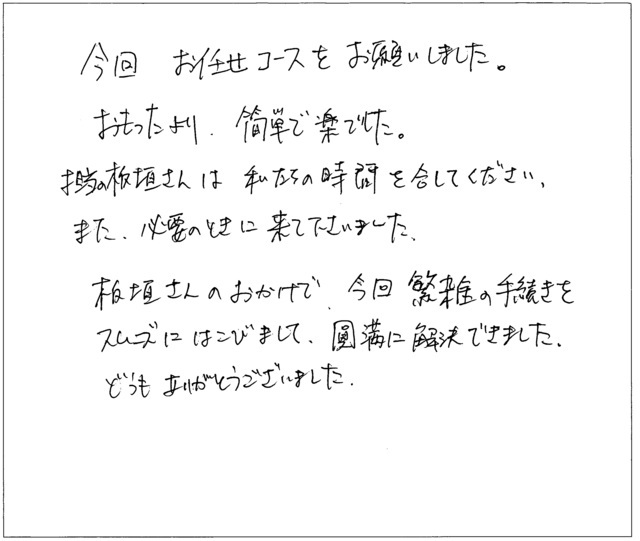 今回 お任せコースをお願いしました。
おもったより、簡単で楽でした。
担当の板垣さんは 私たちの時間を合してください、
また、必要のときに来て下さいました、
板垣さんのおかげで、今回繁雑の手続きを
スムーズにはこびまして、圓満に解決できました、
どうもありがとうございました.